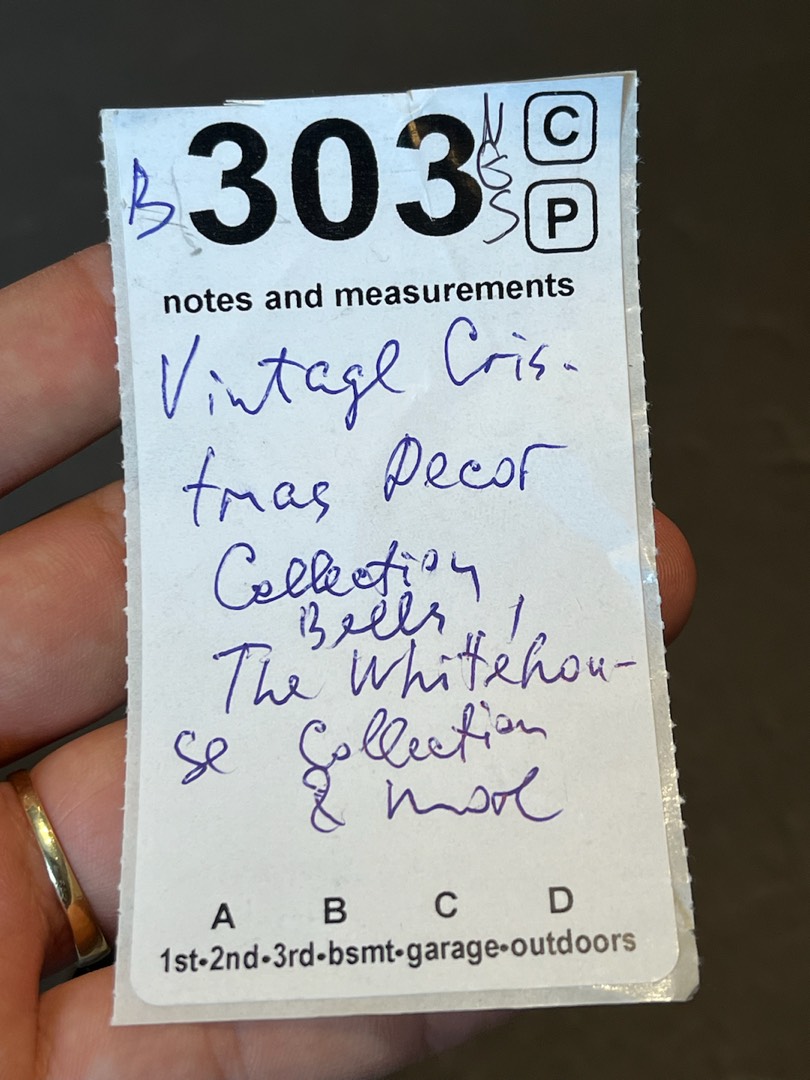 B 303 NGS C
P
notes and measurements
Vintage Cris-
tmas Decor
Collection
Bells,
The Whitehou-
se Collection
& more
A B C D
1st•2nd•3rd•bsmt•garage•outdoors